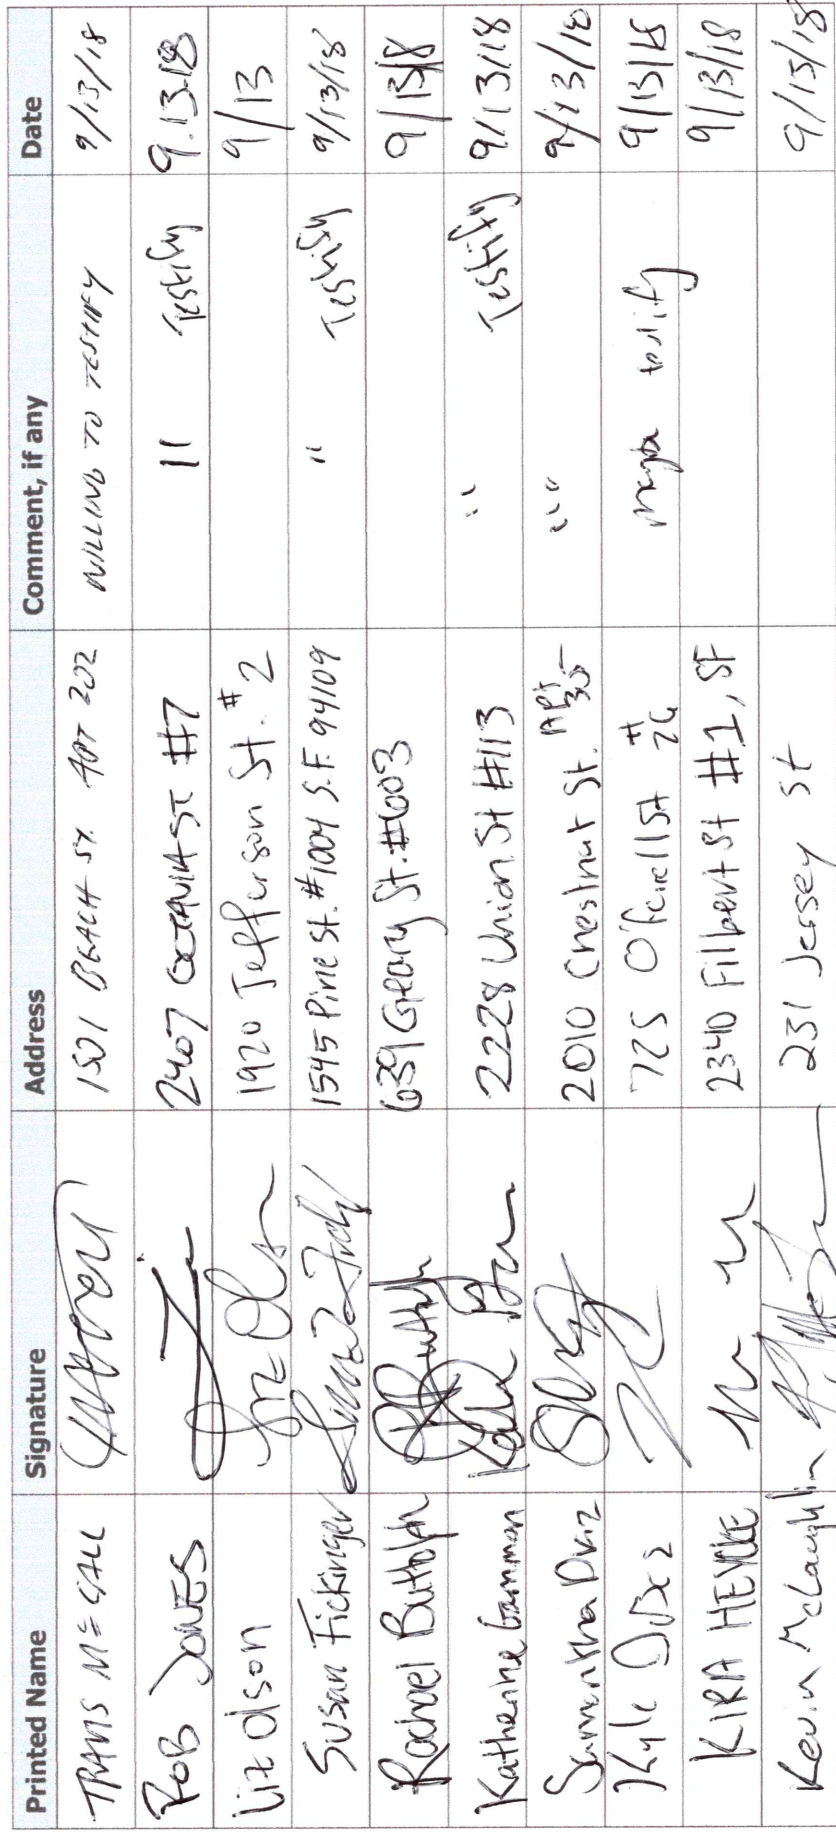 Printed Name Signature Address Comment, if any Date
TRAVIS McCALL 1501 BEACH ST. APT 202 WILLING TO TESTIFY 9/13/18
ROB JONES 2407 OCTAVIA ST #7 11 Testify 9.13.18
Liz Olson Liz Olson 1920 Jefferson St. #2 9/13
Susan Fickinger 1545 Pine St. #1004 S.F. 94109 " Testify 9/13/18
Rachael Buttolph 639 Geary St. #603 9/13/18
Katherine Gammon 2228 Union St #113 " Testify 9/13/18
Samantha 2010 Chestnut St. Apt 305 " 9/13/18
Kyle 725 O'farell St # 26 maybe testify 9/13/18
KIRA HEYCKE 2340 Filbert St #1, SF 9/13/18
Kevin McLaughlin 231 Jersey St 9/15/18